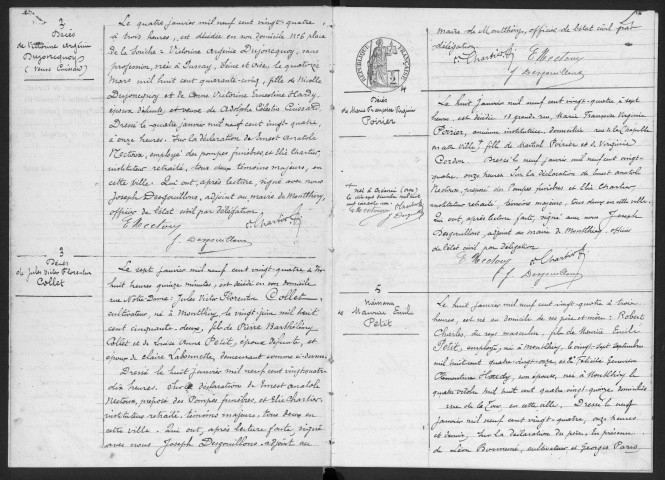 2
Décès
de Victorine Arsénie
Dujoncquoy
(Veuve Cuissard)
Le quatre janvier mil neuf cent vingt-quatre
à trois heures, est décédée en son domicile N° 6 place
de la Souche = Victorine Arsénie Dujoncquoy, sans
profession, née à Seine et Oise, le quatorze
Mars mil huit cent quarante-cinq, fille de Nicolle
Dujoncquoy et de Anne Victorine Ernestine Hardy,
époux défunts, et veuve de Adolphe Célestin Cuissard.
Dressé le quatre janvier mil neuf cent vingt quatre,
à onze heures. Sur la déclaration de Ernest Anatole
Nectoux, employé des pompes funèbres, et Elie Chartier,
instituteur retraité, tous deux témoins majeurs, en
cette ville. Qui ont, après lecture, signé avec nous
Joseph Desgouillons, adjoint au maire de Montlhéry,
officier de l'état civil par délégation.
E Nectoux
Chartier
J Desgouillons
3
Décès
de Jules Victor Florentin
Collet
Le sept janvier mil neuf cent vingt-quatre à
huit heures quinze minutes, est décédé en son domicile
rue Notre Dame = Jules Victor Florentin Collet,
cultivateur, né à Montlhéry le vingt juin mil huit
cent cinquante-deux, fils de Pierre Barthélémy
Collet et de Louise Anne Petit, époux défunts, et
époux de Claire Labonnelle, demeurant comme ci-dessus.
Dressé le huit janvier mil neuf cent vingt quatre
dix heures. Sur la déclaration de Ernest Anatole
Nectoux, préposé des Pompes funèbres, et Elie Chartier
instituteur retraité, témoins majeurs, tous deux en
cette ville. Qui ont, après lecture faite, signé
avec nous Joseph Desgouillons, adjoint au
maire de Montlhéry, officier de l'état civil par
délégation.
Chartier
E Nectoux
J Desgouillons
RÉPUBLIQUE FRANÇAISE
4
Décès
de Marie Françoise Virginie
Poirier
Le huit janvier mil neuf cent vingt-quatre à sept
heures, est décédée 11 grande rue Marie Françoise Virginie
Poirier, ancienne institutrice, domiciliée rue de la Chapelle
en cette ville, fille de Martial Poirier et de Virginie
Cordon. Dressé le neuf janvier mil neuf cent vingt-
quatre, onze heures. Sur la déclaration de Ernest Anatole
Nectoux, préposé des Pompes funèbres, et Elie Chartier,
instituteur retraité, témoins majeurs, tous deux en cette ville.
Qui ont, après lecture faite, signé avec nous Joseph
Desgouillons, adjoint au maire de Montlhéry, officier
de l'état civil, par délégation
E Nectoux
Chartier
J Desgouillons
5
Naissance
de Maurice Emile
Petit
Le huit janvier mil neuf cent vingt-quatre à trois
heures, est né au domicile de ses père et mère : Robert
Charles, du sexe masculin, fils de Maurice Emile
Petit, employé, né à Montlhéry, le vingt-sept septembre
mil huit cent quatre-vingt-onze, et de Félicité Geneviève
Clémentine Hardy, son épouse, née à Montlhéry le
quatre octobre mil huit cent quatre-vingt-quinze domiciliés
rue de la Tour, en cette ville. Dressé le neuf
janvier mil neuf cent vingt-quatre, onze heures
et demie, sur la déclaration du père, en présence
de Léon cultivateur et Georges Paris